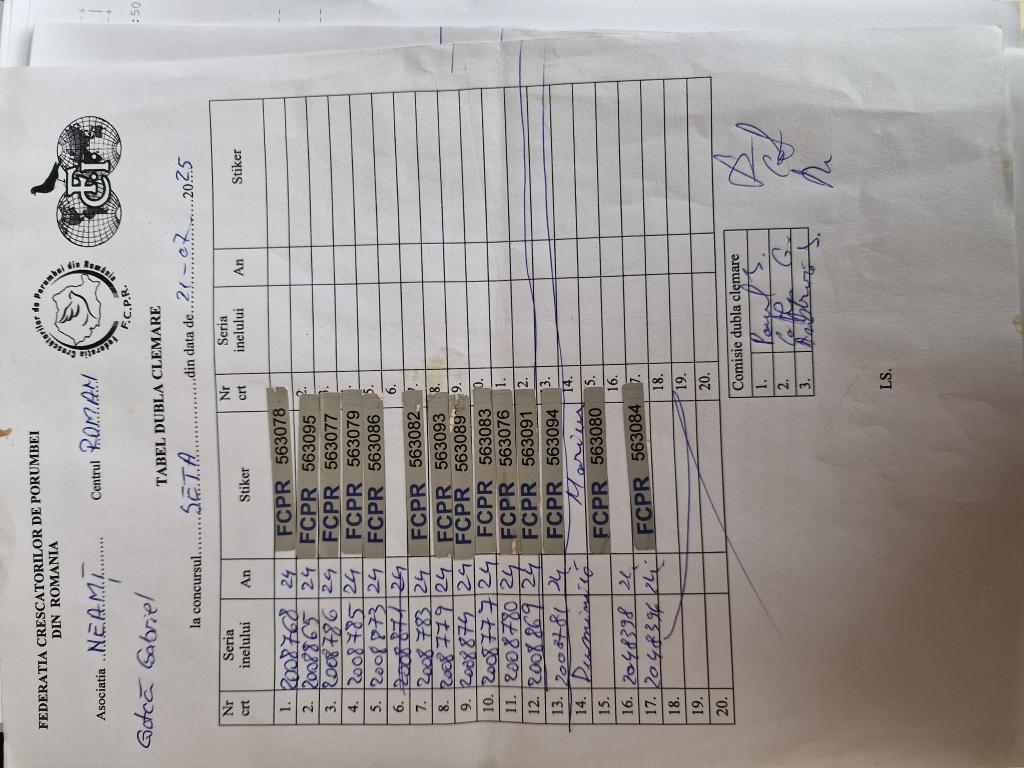 FEDERATIA CRESCATORILOR DE PORUMBEI
DIN ROMANIA
Federatia Crescatorilor de Porumbei din România
F.C.P.R.
FCI
Asociatia ..NEAMȚ........ Centrul ROMAN
Gotcă Gabriel
TABEL DUBLA CLEMARE
la concursul.........SETA.....................din data de..21-07.......2025
Nr crt Seria inelului An Stiker Nr crt Seria inelului An Stiker
1. 2008768 24 FCPR 563078
2. 2008865 24 FCPR 563095 2.
3. 2008786 24 FCPR 563077 3.
4. 2008785 24 FCPR 563079
5. 2008873 24 FCPR 563086 5.
6. 2008871 24 6.
7. 2008783 24 FCPR 563082 7.
8. 2008779 24 FCPR 563093 8.
9. 2008874 24 FCPR 563089 9.
10. 2008777 24 FCPR 563083 0.
11. 2008780 24 FCPR 563076 1.
12. 2008869 24 FCPR 563091 2.
13. 2008781 24 FCPR 563094 3.
14. Marius 14.
15. FCPR 563080 5.
16. 2048398 24 16.
17. 2048394 24 FCPR 563084 7.
18. 18.
19. 19.
20. 20.
Comisie dubla clemare
1.
2. G.
3.
I.S.